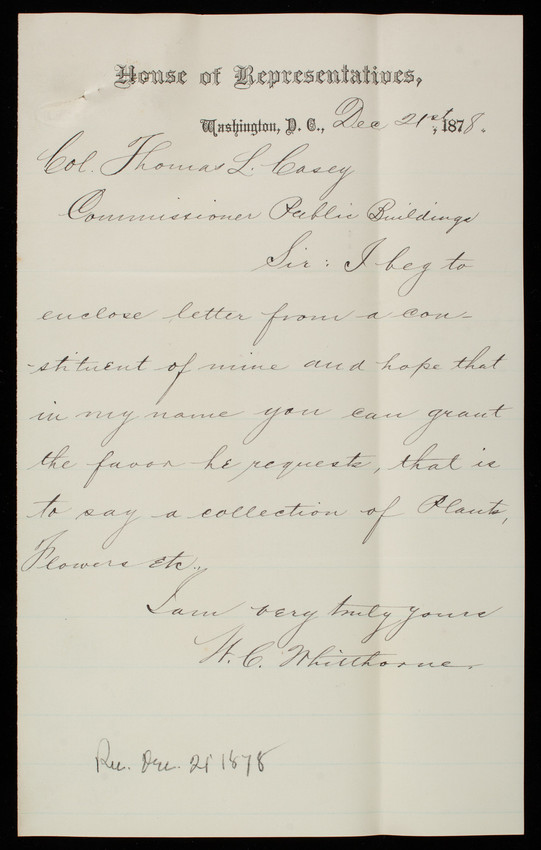 House of Representatives,
Washington, D. C., Dec 21st, 1878.
Col. Thomas L. Casey
Commissioner Public Buildings
Sir: I beg to
enclose letter from a con-
-stituent of mine and hope that
in my name you can grant
the favor he requests, that is
to say a collection of Plants,
Flowers etc.,
I am very truly yours
W. C. Whitthorne.
Rec. Dec. 21 1878